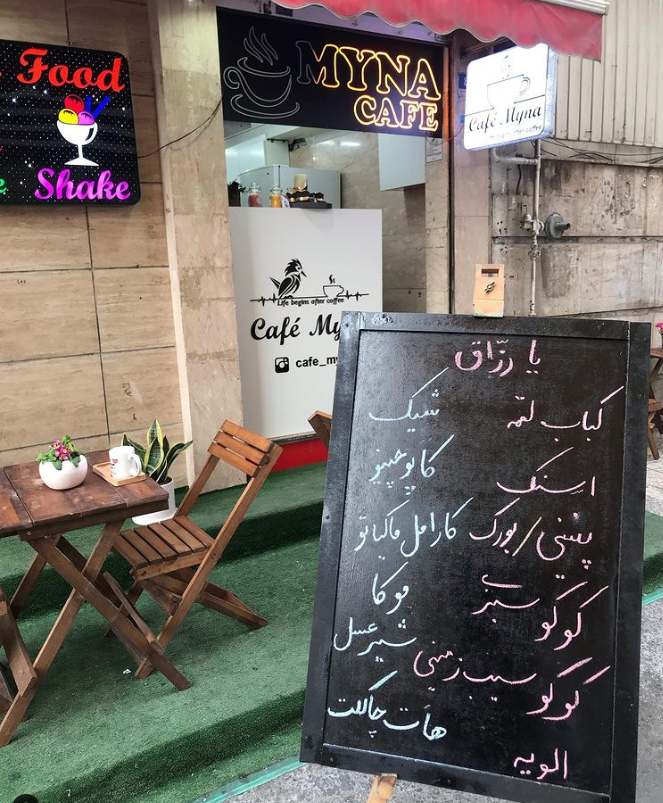 Food
Shake
MYNA
CAFE
Café Myna
Life begins after coffee
Café My
cafe_my
یا رزّاق
کباب لقمه
اسنک
پنینی/بورک
کوکو سبزی
کوکو سیب زمینی
الویه
شیک
کاپوچینو
کارامل ماکیاتو
موکا
شیر عسل
هات چاکلت